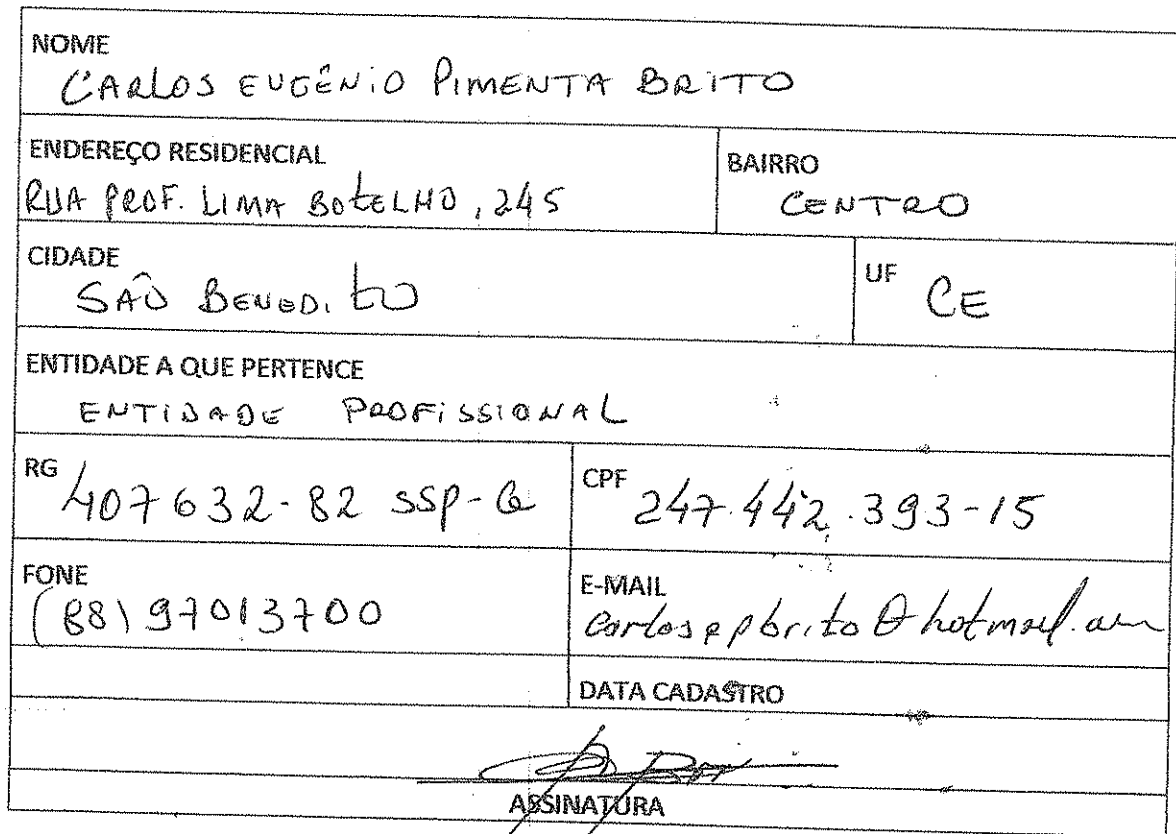 NOME
CARLOS EUGÊNIO PIMENTA BRITO
ENDEREÇO RESIDENCIAL
RUA PROF. LIMA BOTELHO, 245
BAIRRO
CENTRO
CIDADE
SÃO BENEDITO
UF CE
ENTIDADE A QUE PERTENCE
ENTIDADE PROFISSIONAL
RG 407632-82 SSP-Ce
CPF 247.442.393-15
FONE
(88) 97013700
E-MAIL
carlosepbrito@hotmail.com
DATA CADASTRO
ASSINATURA